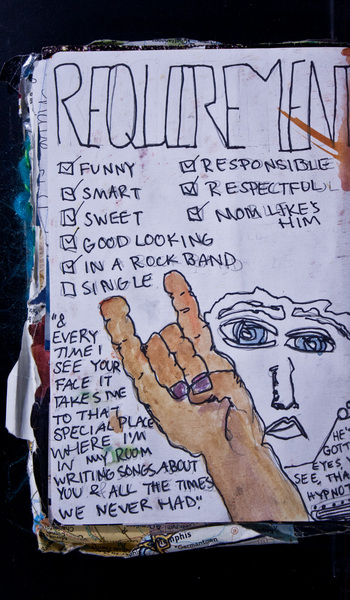 REQUIREMEN
FUNNY
SMART
SWEET
GOOD LOOKING
IN A ROCK BAND
SINGLE
RESPONSIBLE
RESPECTFUL
MOM LIKE'S
HIM
"&
EVERY
TIME I
SEE YOUR
FACE IT
TAKES ME
TO THAT
SPECIAL PLACE
WHERE I'M
IN MY ROOM
WRITING SONGS ABOUT
YOU & ALL THE TIMES
WE NEVER HAD."
HE'S
GOTT
EYES,
SEE, THA
HYPNOT
Memphis
Germantown